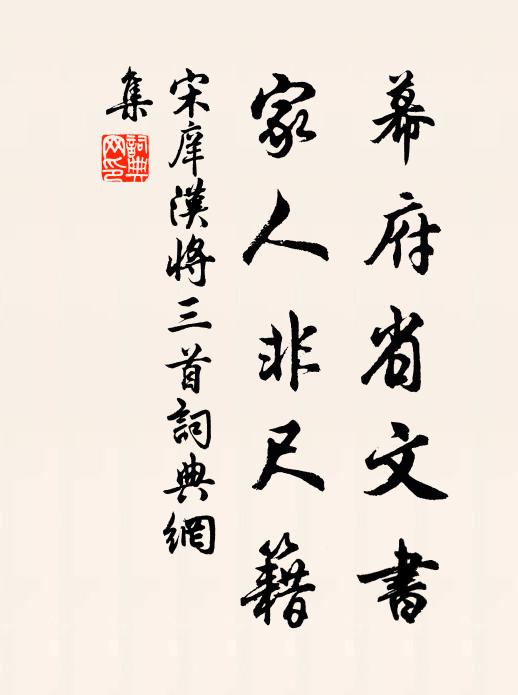 幕府省文書
家人非尺籍
宋庠漢將三首詞典網
集
詞典網印